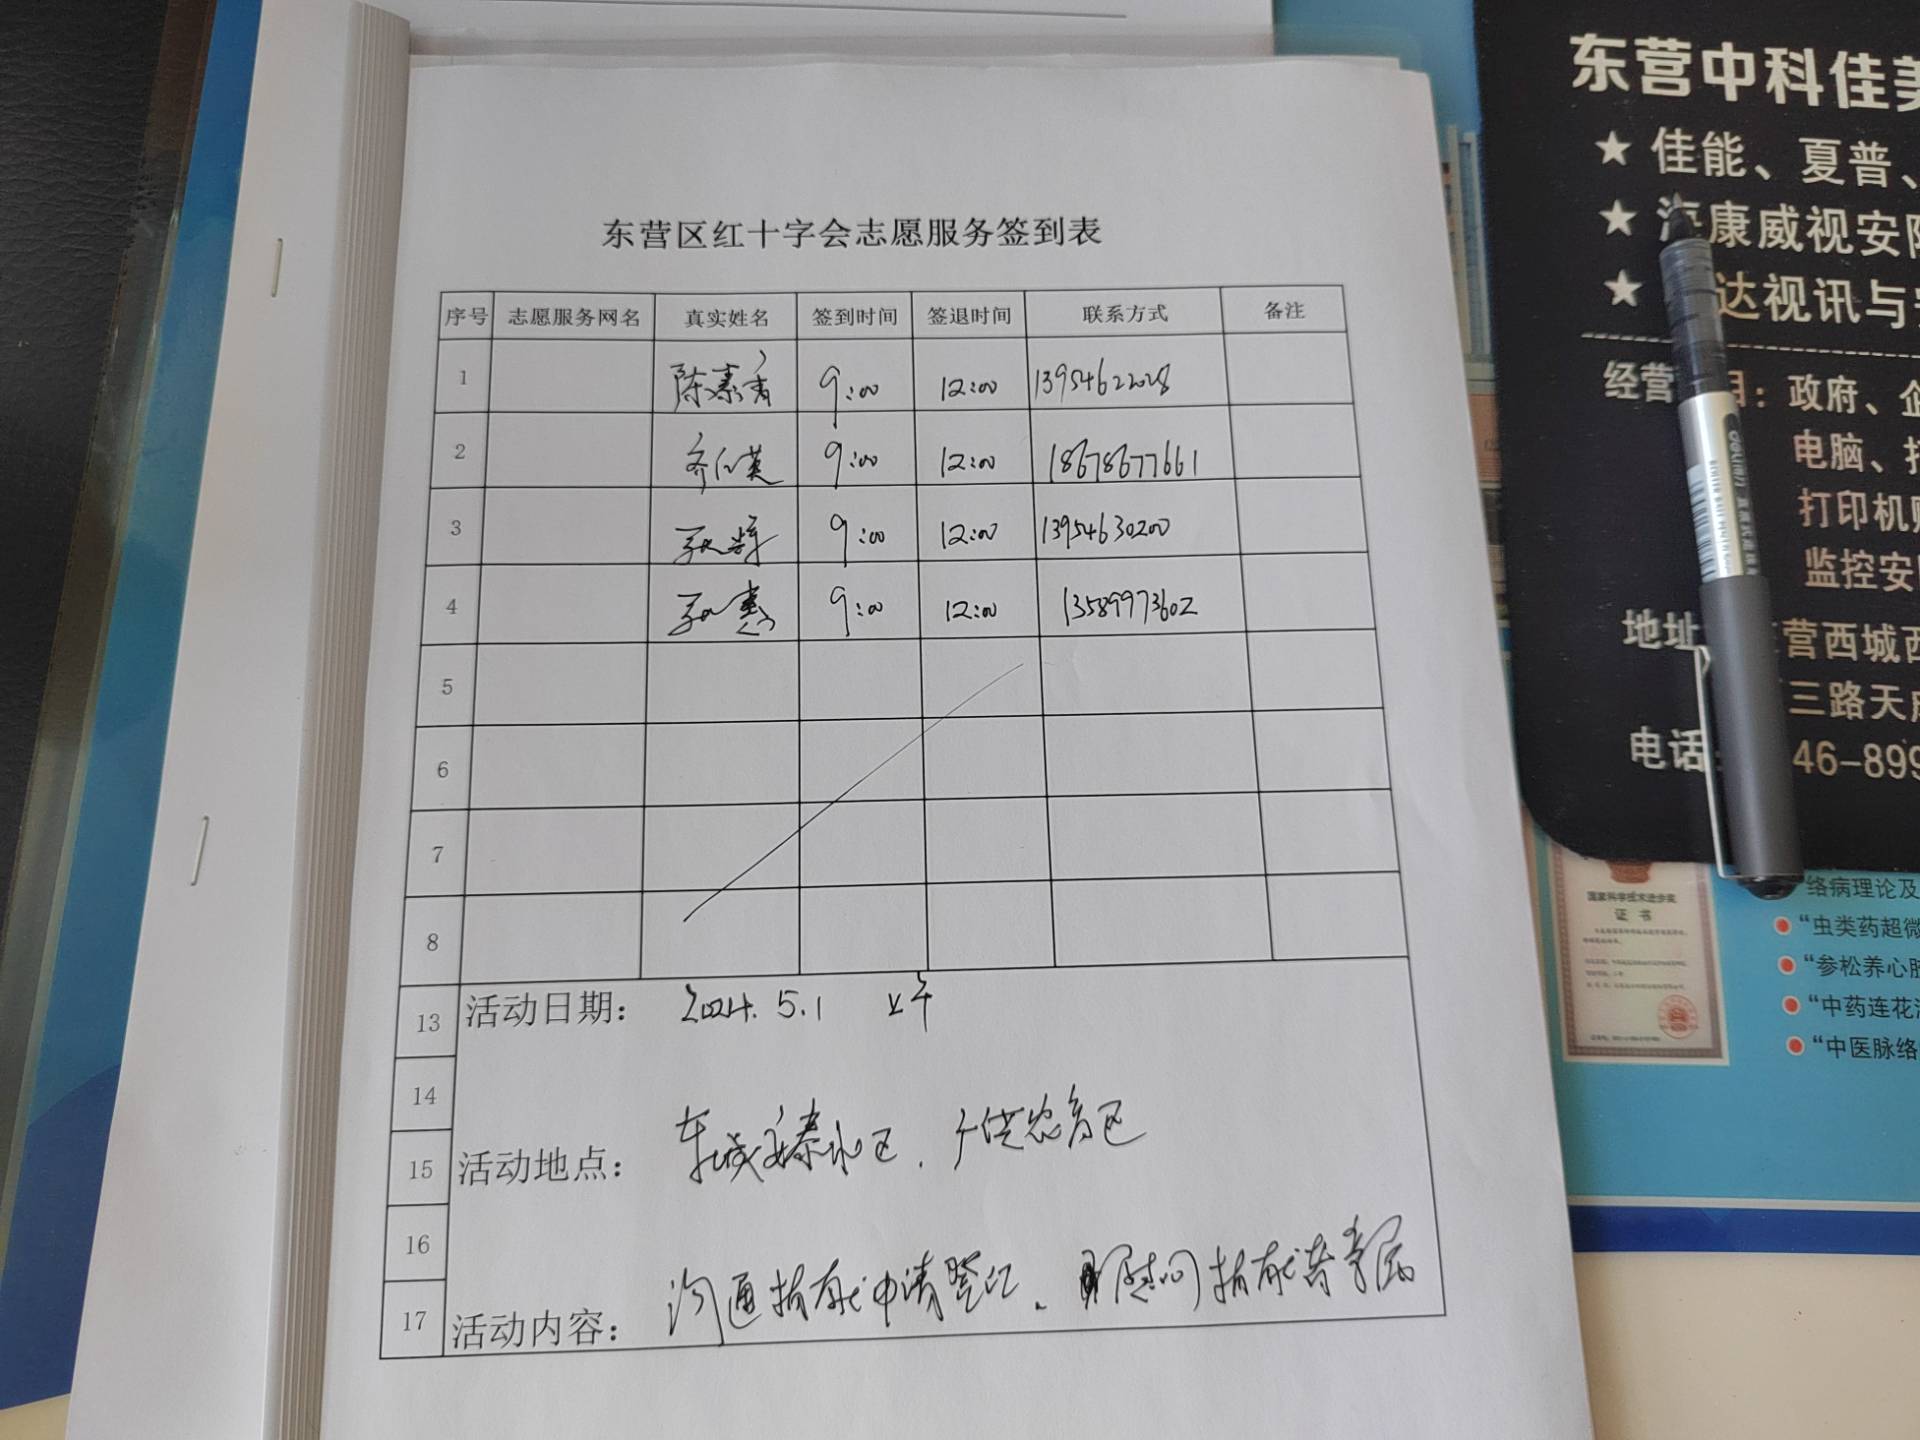 东营区红十字会志愿服务签到表
序号 志愿服务网名 真实姓名 签到时间 签退时间 联系方式 备注
1 陈素青 9:00 12:00 13954622028
2 齐仁英 9:00 12:00 18678677661
3 9:00 12:00 13954630200
4 惠 9:00 12:00 13589973602
5
6
7
8
13 活动日期： 2024.5.1 上午
14
15 活动地点： 东城 区.
16
17 活动内容： 沟通捐献申请登记. 慰问捐献者家属
东营中科佳美
★ 佳能、夏普、
★ 海康威视安防
★ 达视讯与
经营 目：政府、企
电脑、打
打印机
监控安防
地址 营西城西
三路天
电话 46-899
国家科学技术进步奖
证书
络病理论及
“虫类药超微
“参松养心胶
“中药连花清
“中医脉络